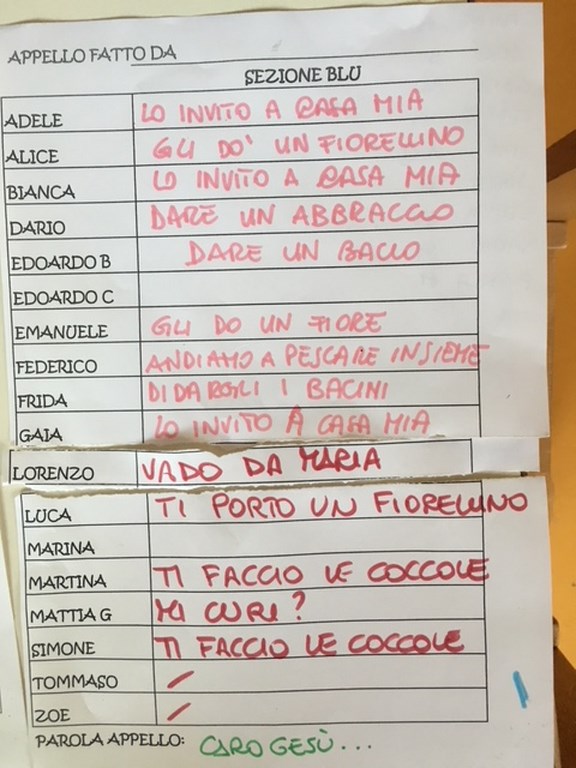 APPELLO FATTO DA
SEZIONE BLU
ADELE LO INVITO A CASA MIA
ALICE GLI DO' UN FIORELLINO
BIANCA LO INVITO A CASA MIA
DARIO DARE UN ABBRACCIO
EDOARDO B DARE UN BACIO
EDOARDO C
EMANUELE GLI DO UN FIORE
FEDERICO ANDIAMO A PESCARE INSIEME
FRIDA DI DARGLI I BACINI
GAIA LO INVITO A CASA MIA
LORENZO VADO DA MARIA
LUCA TI PORTO UN FIORELLINO
MARINA
MARTINA TI FACCIO LE COCCOLE
MATTIA G MI CURI?
SIMONE TI FACCIO LE COCCOLE
TOMMASO /
ZOE /
PAROLA APPELLO: CARO GESÙ...